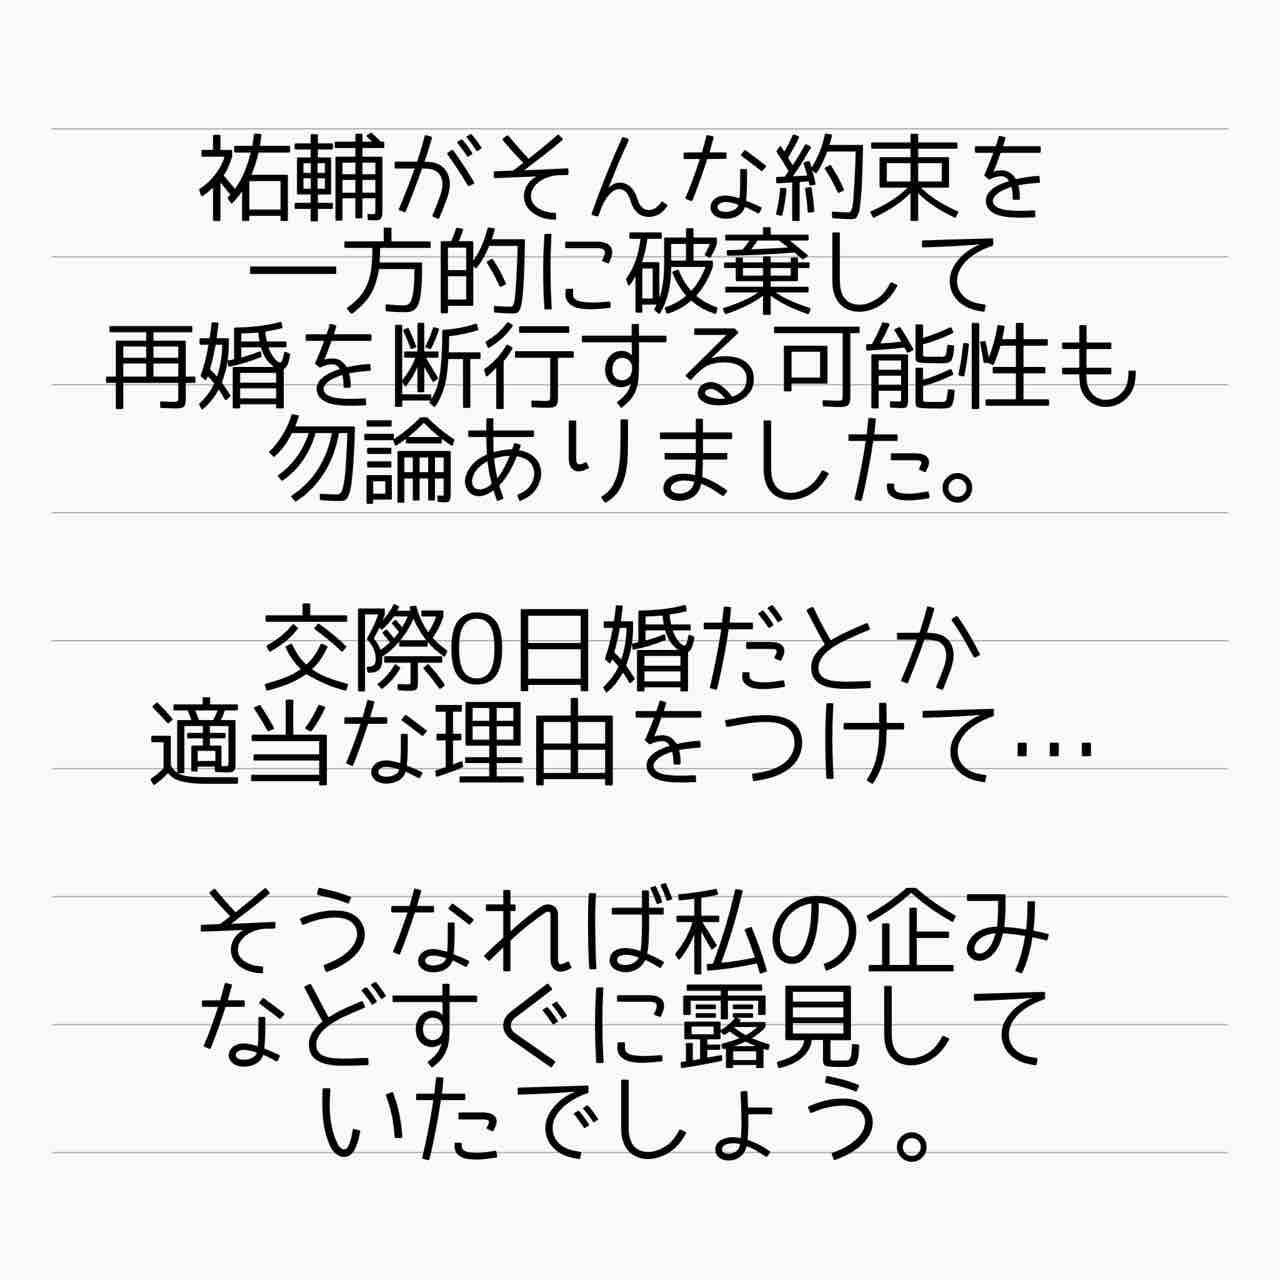 祐輔がそんな約束を
一方的に破棄して
再婚を断行する可能性も
勿論ありました。
交際0日婚だとか
適当な理由をつけて…
そうなれば私の企み
などすぐに露見して
いたでしょう。